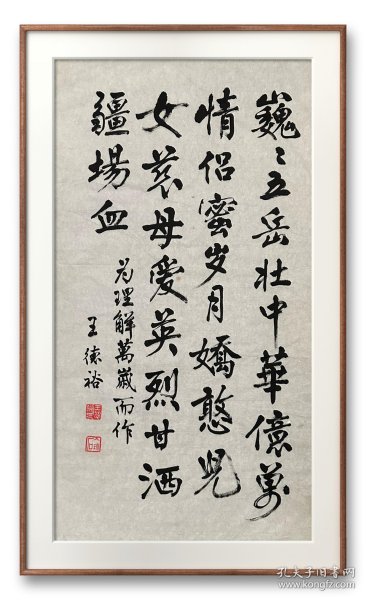 巍〻五岳壮中華億萬
情侣蜜岁月嬌憨児
女慈母愛英烈甘洒
疆場血
为理解萬歲而作
王德裕
孔夫子旧书网
www.kongfz.com